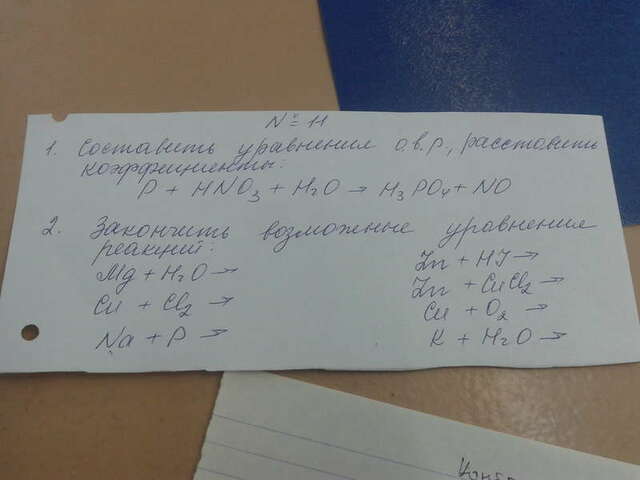 № 11
1. Составить уравнения о.в.р, расставить
коэффициенты:
P + HNO₃ + H₂O → H₃PO₄ + NO
2. Закончить возможные уравнения
реакций:
Mg + H₂O →
Cu + Cl₂ →
Na + P →
Zn + HJ →
Zn + CuCl₂ →
Cu + O₂ →
K + H₂O →